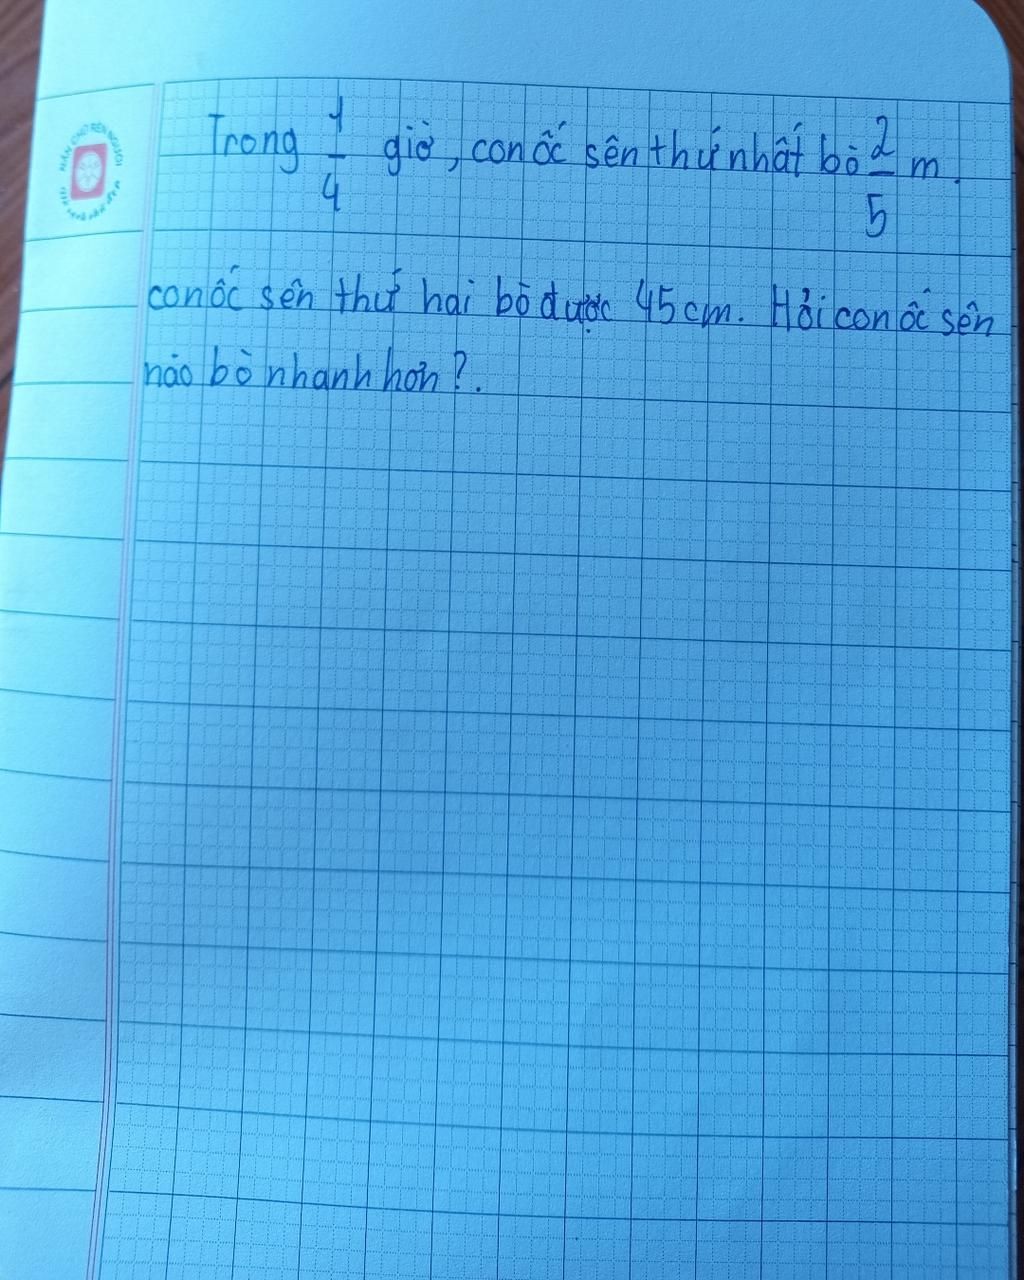 Trong 1/4 giờ, con ốc sên thứ nhất bò 2/5 m.
con ốc sên thứ hai bò được 45cm. Hỏi con ốc sên
nào bò nhanh hơn?.